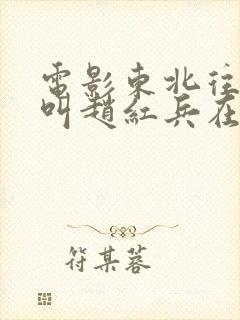 電影東北往
叫趙紅兵在
符某蓉